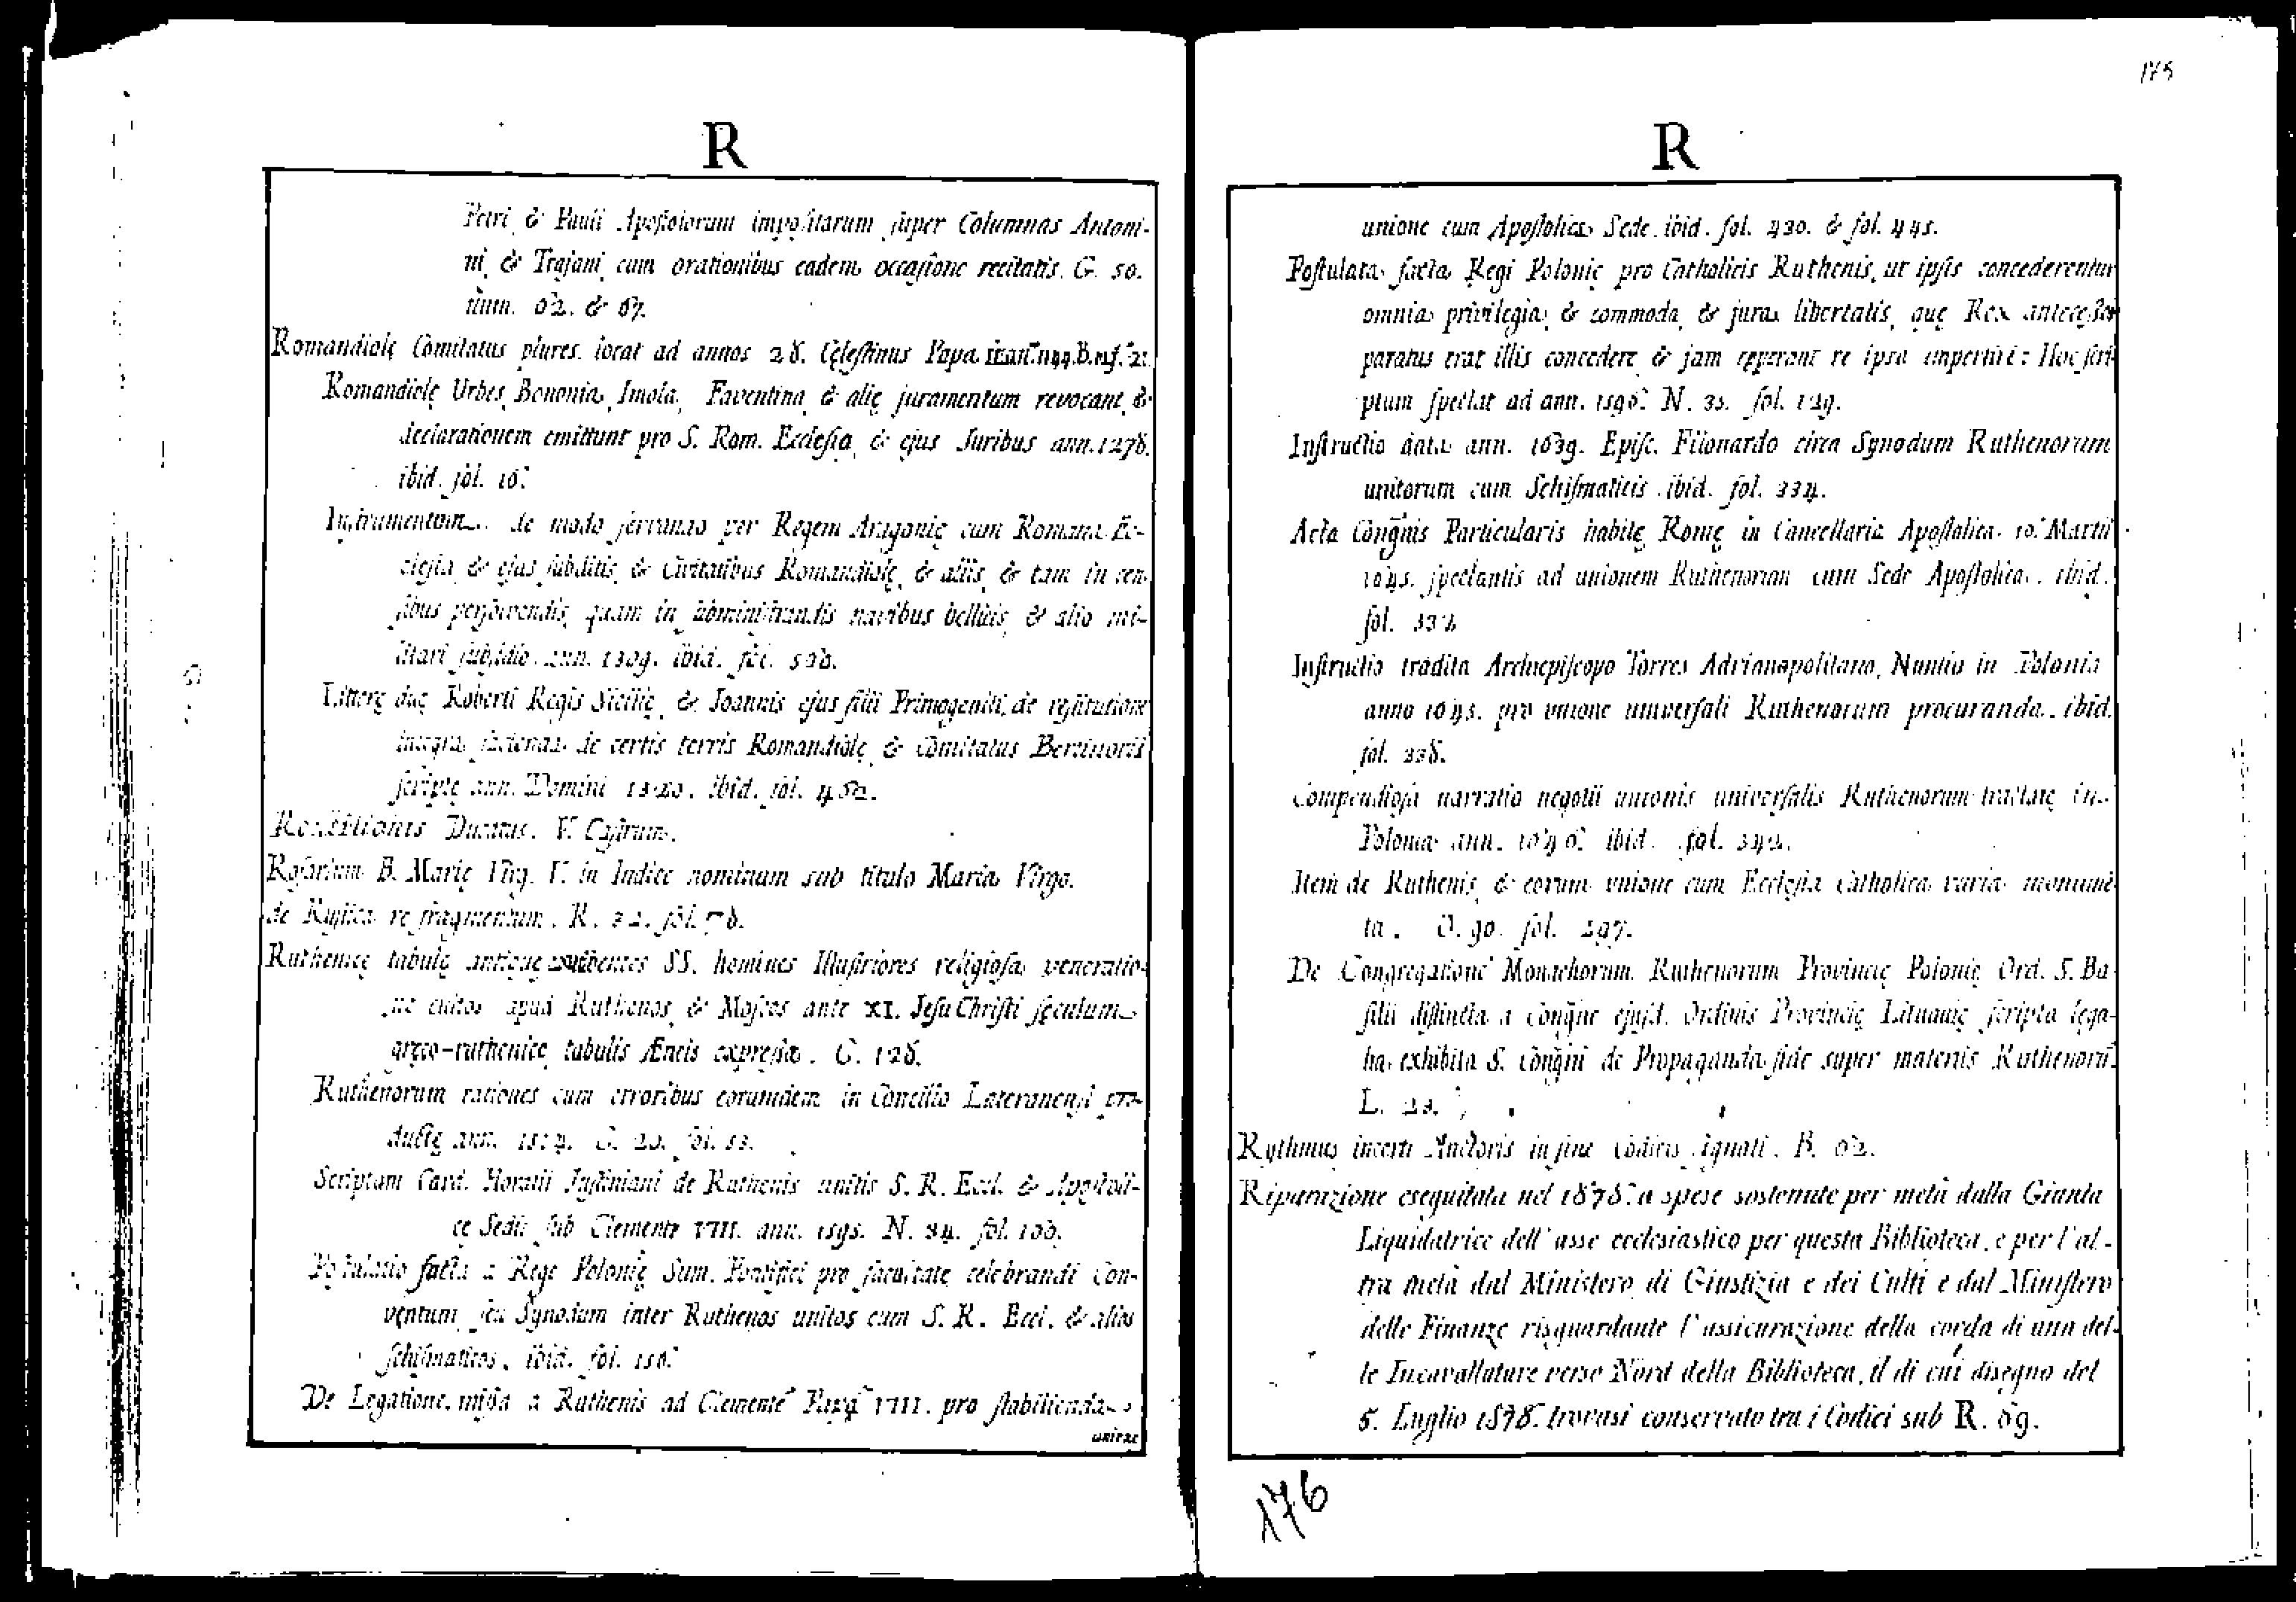 175
R
Petri, & Pauli Apostolorum impositarum super Columnas Antoni-
ni, & Trajani, cum orationibus eadem occasione recitatis. G. 50.
num. 62. & 67.
Romandiolę Comitatus plures locat ad annos 28. Cęlestinus Papa
Romandiolę Urbes, Bononia, Imola, Faventina, & alię juramentum revocant, &
declarationem emittunt pro S. Rom. Ecclesia, & ejus Juribus ann. 1278.
ibid. fol. 16.
Instrumentum de modo servando per Regem Aragonię cum Romana Ec-
clesia, & ejus subditis, & Civitatibus Romandiolę, & aliis, & tam in cen-
sibus persolvendis, quam in subministrandis navibus bellicis, & alio mi-
litari subsidio. ann. 1309. ibid. fol.
Litterę duę Roberti Regis Sicilię, & Joannis ejus filii Primogeniti, de restitutione
integra facienda de certis terris Romandiolę, & Comitatus Bertinorii
scriptę ann. Domini 1320. ibid. fol. 462.
Roncilionis Ducatus. V. Castrum.
Rosarium B. Marię Virg. V. in Indice nominum sub titulo Maria Virgo.
de Rustica re fragmentum. R. 32. fol. 78.
Ruthenicę tabulę antiquę exhibentes SS. homines Illustriores religiosa veneratio-
ne cultos apud Ruthenos, & Moscos ante XI. Jesu Christi sęculum
gręco-ruthenicę tabulis Æneis expressa. G. 128.
Ruthenorum rationes cum erroribus eorumdem in Concilio Lateranensi pro-
ductę ann. 1514. fol. 53.
Scriptum Card. Horatii Justiniani de Ruthenis unitis S. R. Eccl. & Apostoli-
cę Sedi sub Clemente VIII. ann. 1595. N. 34. fol. 106.
Postulatio facta a Rege Polonię Sum. Pontifici pro facultate celebrandi Con-
ventum, seu Synodum inter Ruthenos unitos cum S. R. Eccl. & alios
schismaticos. ibid. fol. 116.
De Legatione missa a Ruthenis ad Clementē Papā VIII. pro stabilienda
unione
R
unione cum Apostolica Sede. ibid. fol. 430. & fol. 445.
Postulata facta Regi Polonię pro Catholicis Ruthenis, ut ipsis concederentur
omnia privilegia, & commoda, & jura libertatis, quę Rex antecessor
paratus erat illis concedere, & jam cęperant re ipsa impertiri: Hoc scri-
ptum spectat ad ann. 1596. N. 35. fol. 129.
Instructio data ann. 1639. Episc. Filonardo circa Synodum Ruthenorum
unitorum cum Schismaticis. ibid. fol. 334.
Acta Congñis Particularis habitę Romę in Cancellaria Apostolica 16. Martii
1645. spectantis ad unionem Ruthenorum cum Sede Apostolica. ibid.
fol.
Instructio tradita Archiepiscopo Torres Adrianopolitano, Nuntio in Polonia
anno 1645. pro unione universali Ruthenorum procuranda. ibid.
fol. 338.
Compendiosa narratio negotii unionis universalis Ruthenorum tractatę in
Polonia ann. 1646. ibid. fol. 342.
Item de Ruthenis, & eorum unione cum Ecclesia Catholica varia monumē-
ta. O. 90. fol. 297.
De Congregatione Monachorum Ruthenorum Provincię Polonię Ord. S. Ba-
silii distincta a Congñe ejusd. Ordinis Provincię Lituanię scripta lega-
lia exhibita S. Congñi de Propaganda fide super materiis Ruthenorū.
L. 23.
Rythmus incerti Auctoris in fine Codicis signati. B. 62.
Riparazione eseguitata nel 1878. a spese sostenute per metà dalla Giunta
Liquidatrice dell' asse ecclesiastico per questa Biblioteca, e per l' al-
tra metà dal Ministero di Giustizia e dei Culti e dal Ministero
delle Finanze risguardante l' assicurazione della corda di una del-
le Incavallature verso Nord della Biblioteca, il di cui disegno del
5. Luglio 1878. trovasi conservato tra i Codici sub R. 69.
176